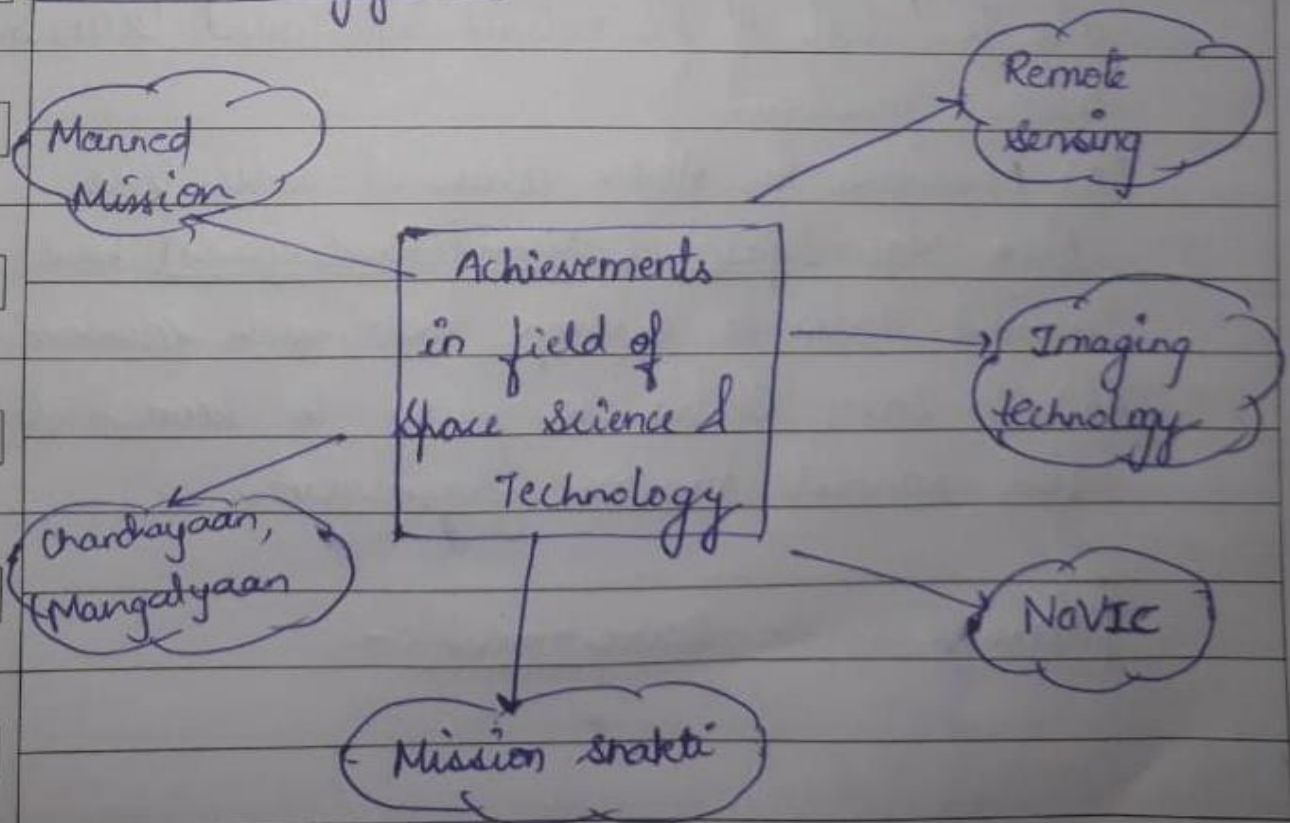 Manned
Mission
Remote
sensing
Achievements
in field of
space science &
Technology
Imaging
technology
Chandrayaan,
Mangalyaan
NaVIC
Mission Shakti